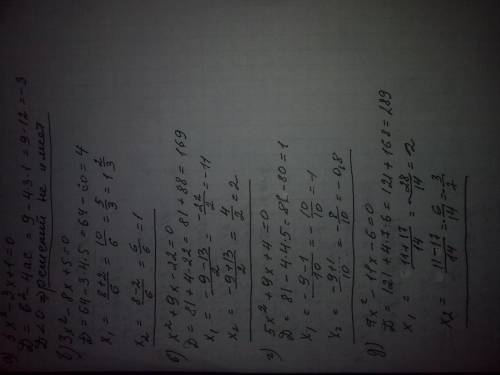 а) 3x² - 3x + 1 = 0
D = b² - 4ac = 9 - 4·3·1 = 9 - 12 = -3
D < 0 ⇒ решений не имеет
б) 3x² - 8x + 5 = 0
D = 64 - 3·4·5 = 64 - 60 = 4
x₁ = (8+2)/6 = 10/6 = 5/3 = 1 2/3
x₂ = (8-2)/6 = 6/6 = 1
в) x² + 9x - 22 = 0
D = 81 + 4·22 = 81 + 88 = 169
x₁ = (-9-13)/2 = -22/2 = -11
x₂ = (-9+13)/2 = 4/2 = 2
г) 5x² + 9x + 4 = 0
D = 81 - 4·4·5 = 81 - 80 = 1
x₁ = (-9-1)/10 = -10/10 = -1
x₂ = (-9+1)/10 = -8/10 = -0,8
д) 7x² - 11x - 6 = 0
D = 121 + 4·7·6 = 121 + 168 = 289
x₁ = (11+17)/14 = 28/14 = 2
x₂ = (11-17)/14 = -6/14 = -3/7